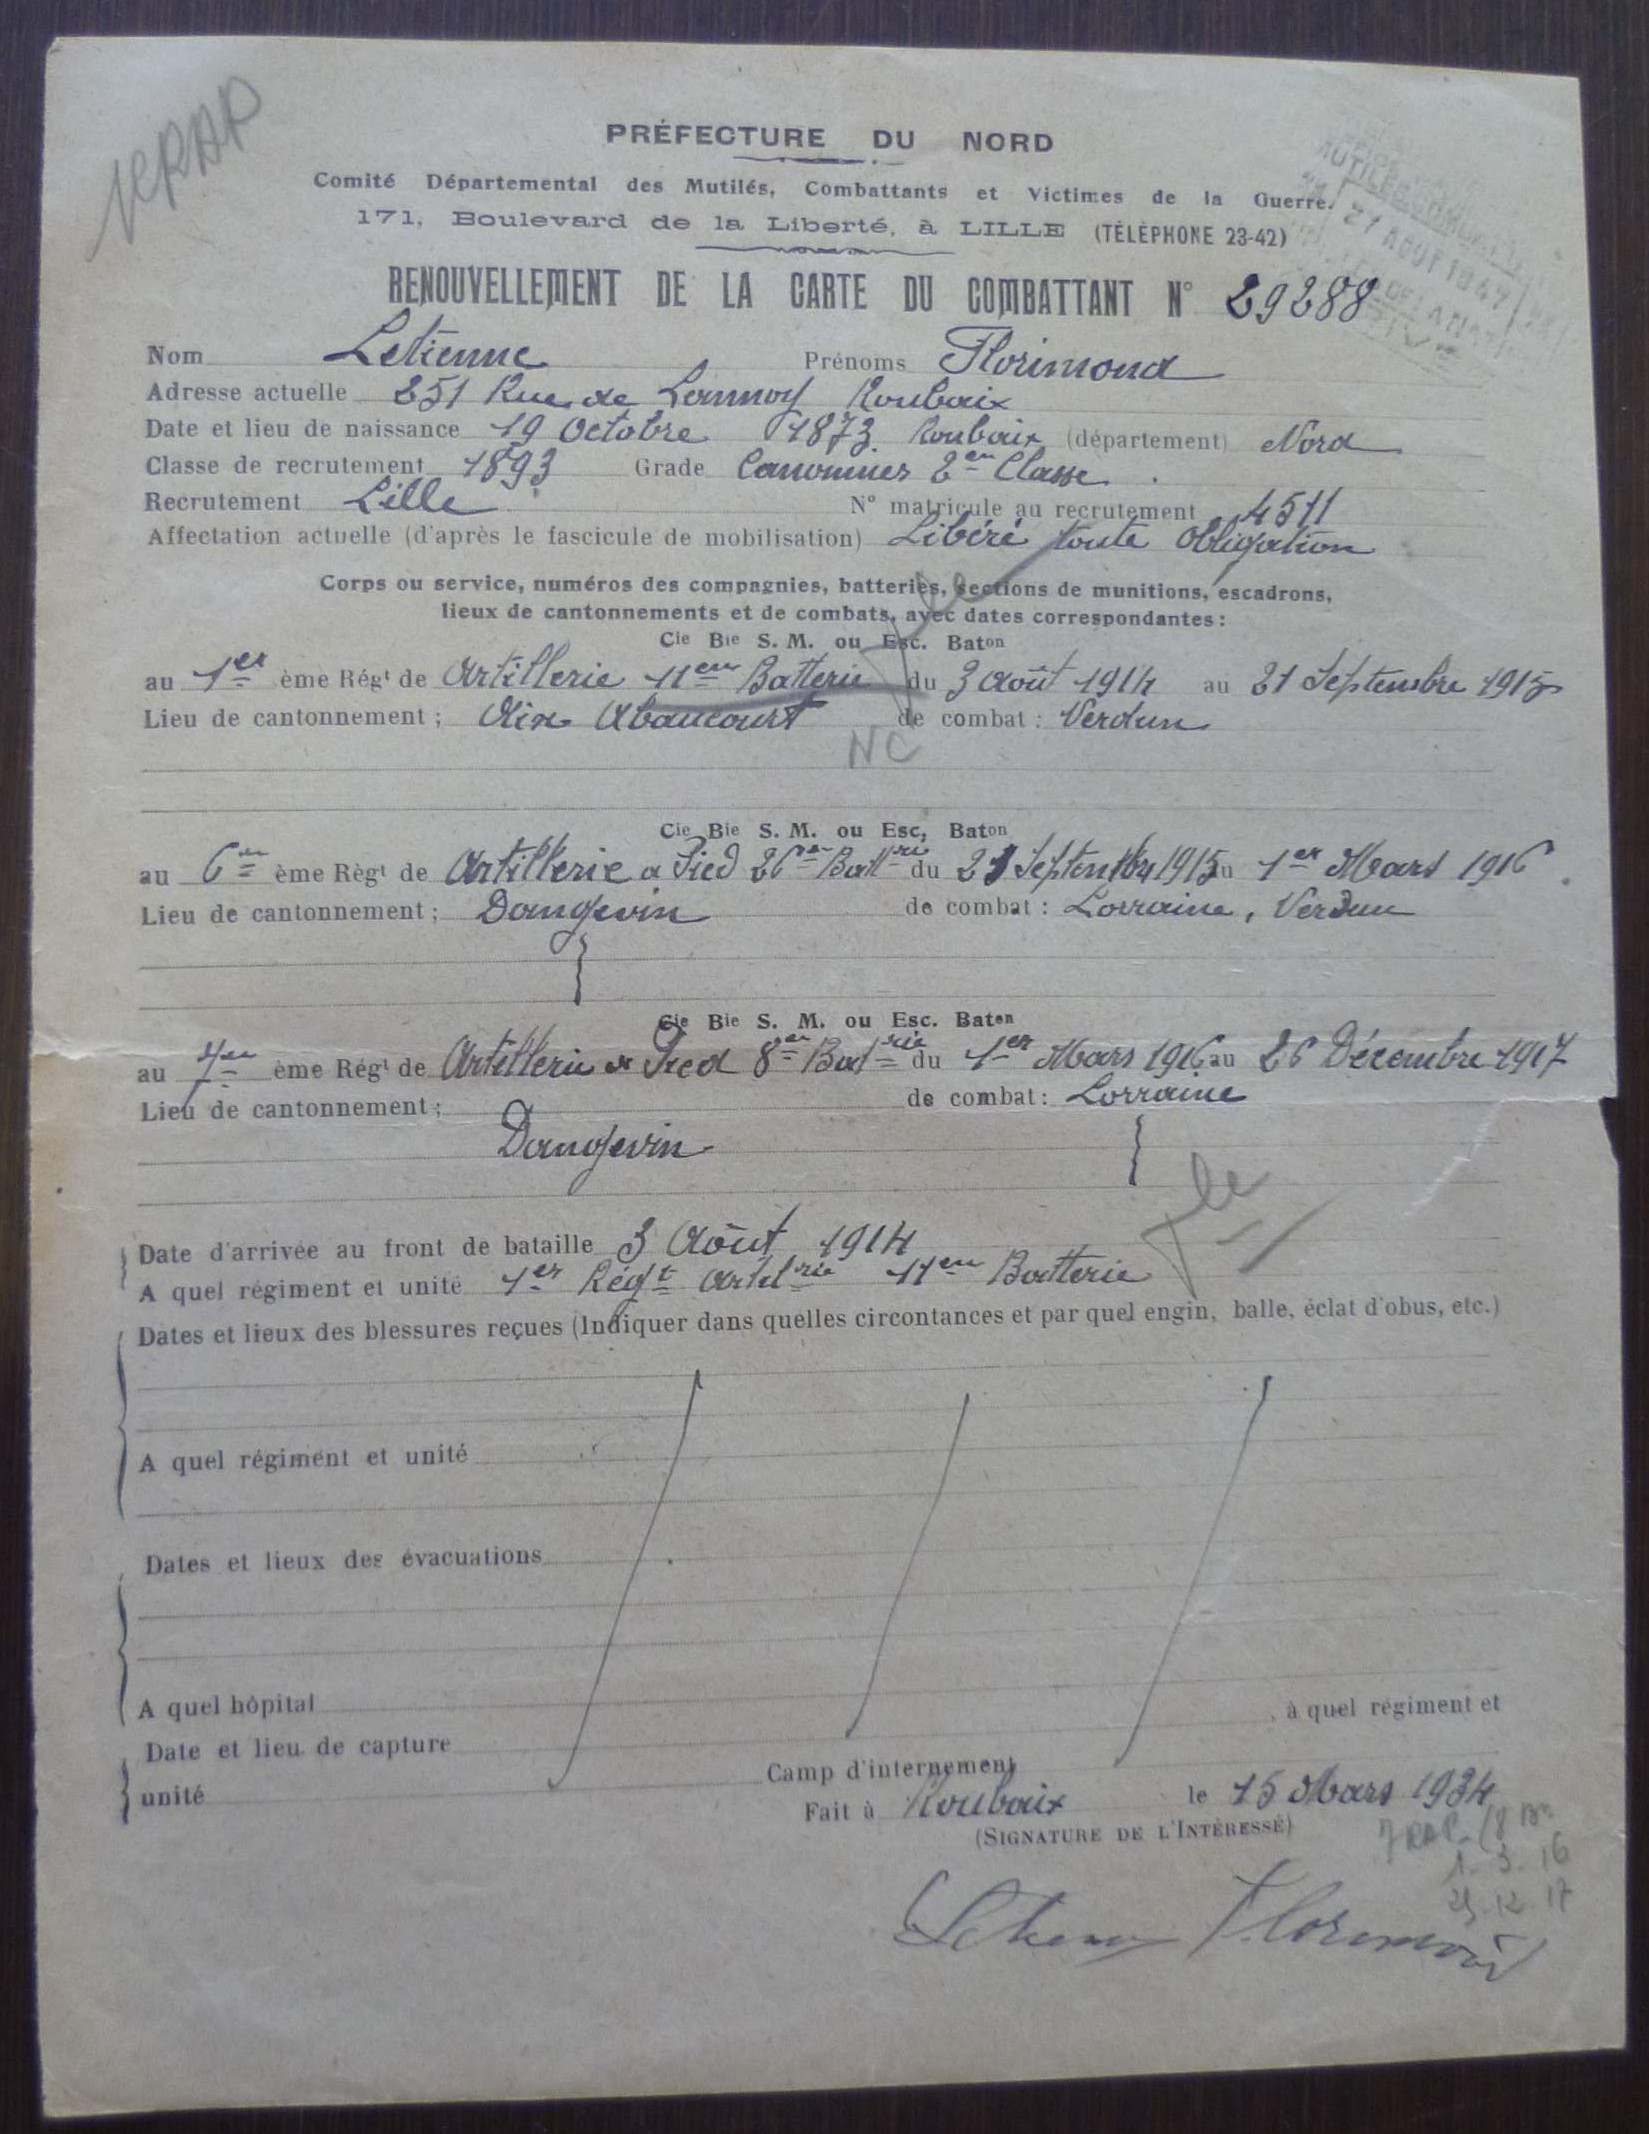 PRÉFECTURE DU NORD
Comité Départemental des Mutilés, Combattants et Victimes de la Guerre.
171, Boulevard de la Liberté, à LILLE (TÉLÉPHONE 23-42)
21 AOUT 1947
RENOUVELLEMENT DE LA CARTE DU COMBATTANT N° 29288
Nom Letienne Prénoms Florimond
Adresse actuelle 251 Rue de Lannoy Roubaix
Date et lieu de naissance 19 Octobre 1873 Roubaix (département) Nord
Classe de recrutement 1893 Grade Canonnier 2em Classe
Recrutement Lille N° matricule au recrutement 4511
Affectation actuelle (d'après le fascicule de mobilisation) Libéré toute obligation
Corps ou service, numéros des compagnies, batteries, sections de munitions, escadrons,
lieux de cantonnements et de combats, avec dates correspondantes :
Cie Bie S. M. ou Esc. Baton
au 1er ème Régt de Artillerie 11em Batterie du 3 août 1914 au 21 Septembre 1915
Lieu de cantonnement ; Dix Abaucourt de combat : Verdun
NC
Cie Bie S. M. ou Esc, Baton
au 6em ème Règt de Artillerie a Pied 26em Battrie du 21 Septembre 1915 au 1er Mars 1916
Lieu de cantonnement ; Domgevin de combat : Lorraine, Verdun
Cie Bie S. M. ou Esc. Baton
au 7em ème Régt de Artillerie a Pied 8em Batrie du 1er Mars 1916 au 26 Décembre 1917
Lieu de cantonnement ; de combat : Lorraine
Domgevin
Date d'arrivée au front de bataille 3 Août 1914
A quel régiment et unité 1er Régt Artilrie 11em Batterie
Dates et lieux des blessures reçues (Indiquer dans quelles circontances et par quel engin, balle, éclat d'obus, etc.)
A quel régiment et unité
Dates et lieux des évacuations
A quel hôpital
Date et lieu de capture , à quel régiment et
unité Camp d'internement
Fait à Roubaix le 15 Mars 1934
(SIGNATURE DE L'INTÉRESSÉ)
1. 3. 16
Letienne Florimond